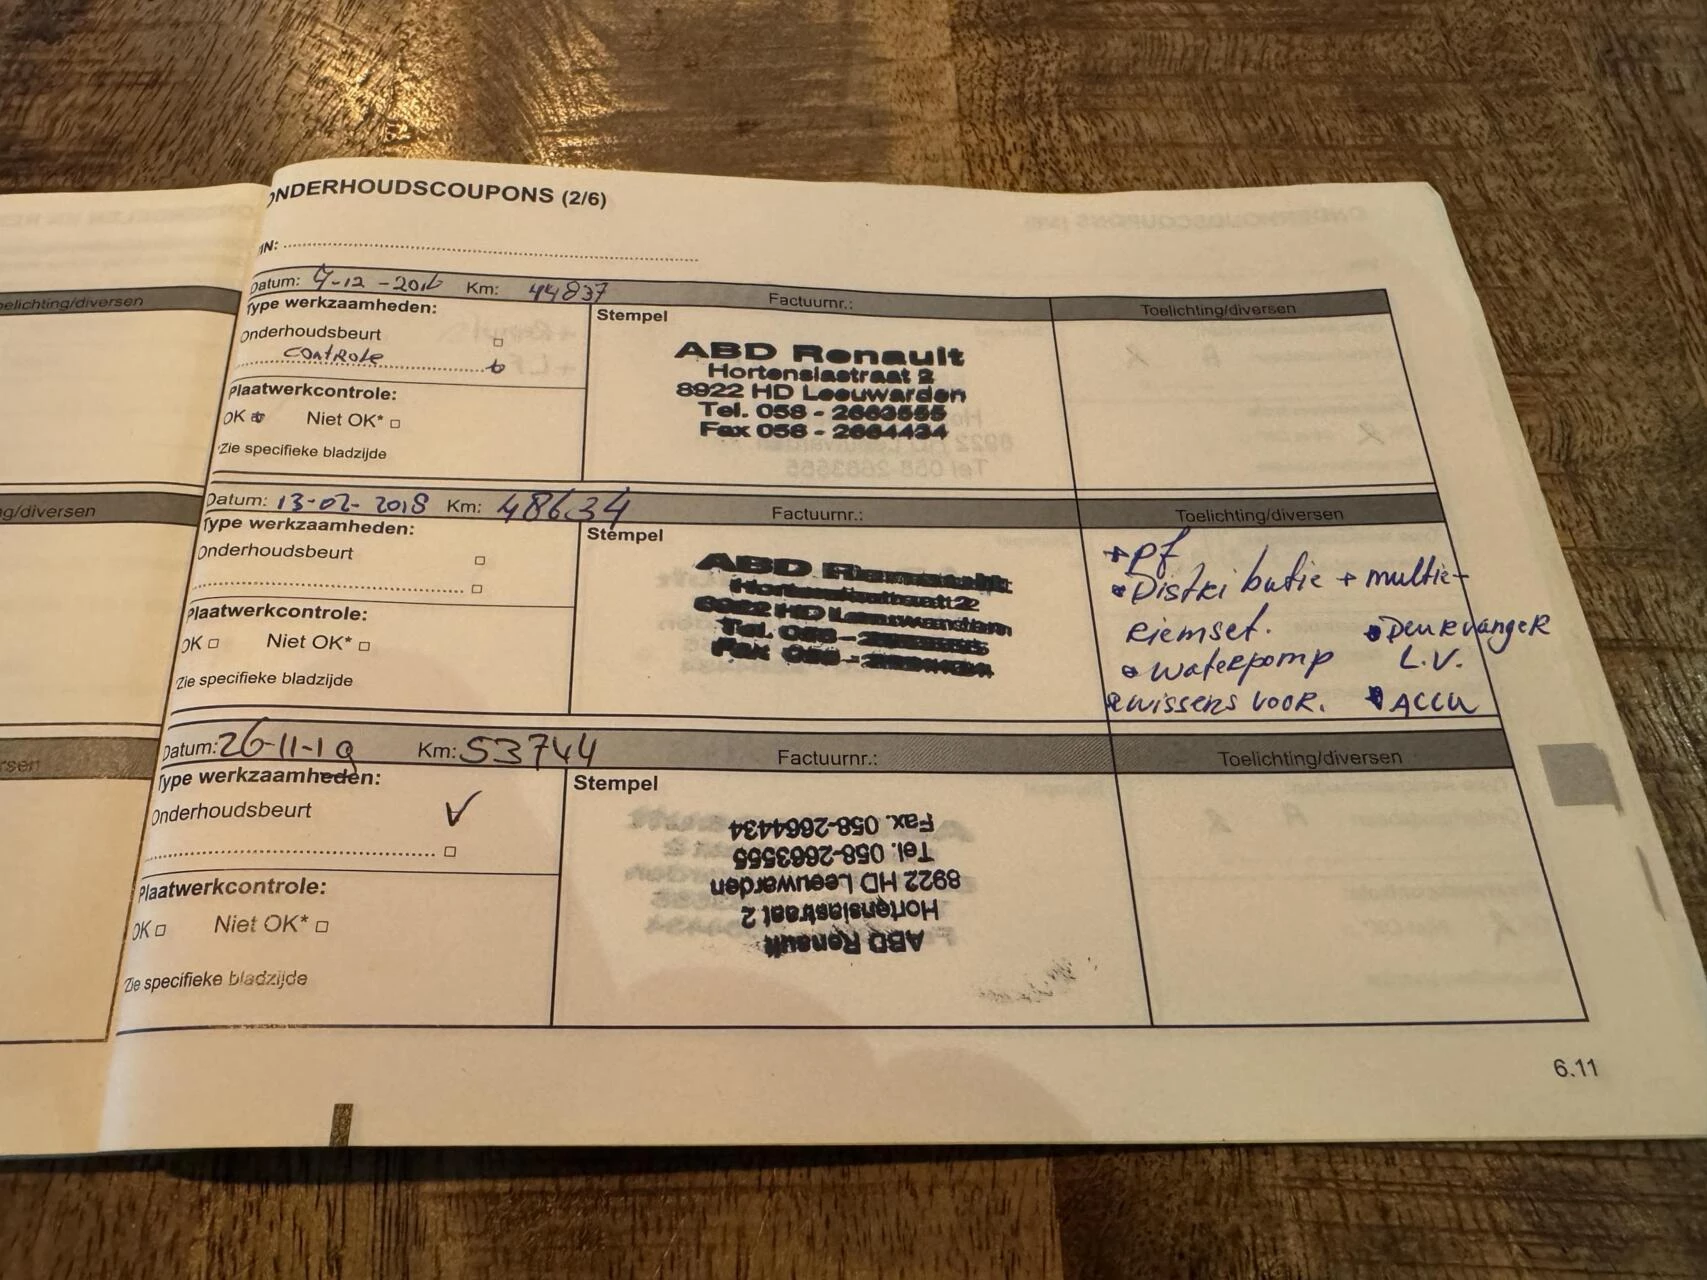 ONDERHOUDSCOUPONS (2/6)
IN:
Datum: 7-12-2016 Km: 44837 Factuurnr.: Toelichting/diversen
Type werkzaamheden:
Onderhoudsbeurt
controle
Plaatwerkcontrole:
OK Niet OK*
*Zie specifieke bladzijde
Stempel
ABD Renault
Hortensiastraat 2
8922 HD Leeuwarden
Tel. 058 - 2663555
Fax 058 - 2664434
Datum: 13-02-2018 Km: 48634 Factuurnr.: Toelichting/diversen
Type werkzaamheden:
Onderhoudsbeurt
Plaatwerkcontrole:
OK Niet OK*
*Zie specifieke bladzijde
Stempel
ABD Renault
Hortensiastraat 2
8922 HD Leeuwarden
Tel. 058 - 2663555
Fax 058 - 2664434
+ pf
• Distributie + multie-
riemset. • Deurvanger
• waterpomp L.V.
wissers voor. • ACCU
Datum: 26-11-19 Km: 53744 Factuurnr.: Toelichting/diversen
Type werkzaamheden:
Onderhoudsbeurt V
Plaatwerkcontrole:
OK Niet OK*
Zie specifieke bladzijde
Stempel
ABD Renault
Hortensiastraat 2
8922 HD Leeuwarden
Tel. 058-2663555
Fax. 058-2664434
6.11
elichting/diversen
g/diversen
rsen